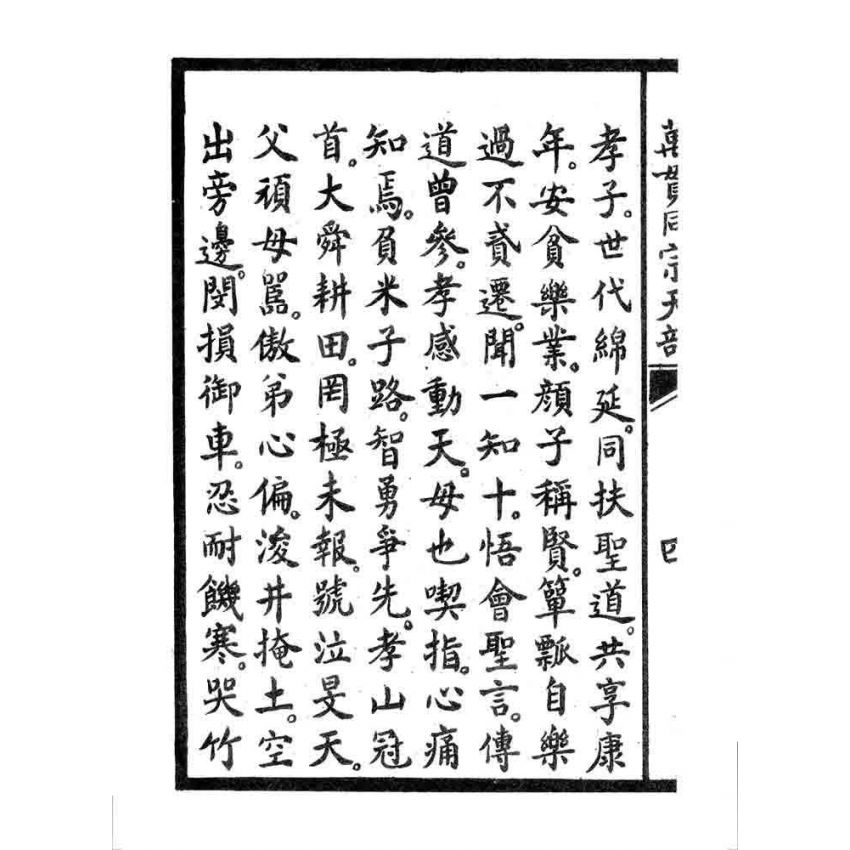 萬貫同宗天部
四
孝子。世代綿延。同扶聖道。共享康
年。安貧樂業。顏子稱賢。簞瓢自樂
過不貳遷。聞一知十。悟會聖言。傳
道曾參。孝感動天。母也喫指。心痛
知焉。負米子路。智勇爭先。孝山冠
首。大舜耕田。罔極未報。號泣旻天。
父頑母嚚。傲弟心偏。浚井掩土。空
出旁邊。閔損御車。忍耐饑寒。哭竹